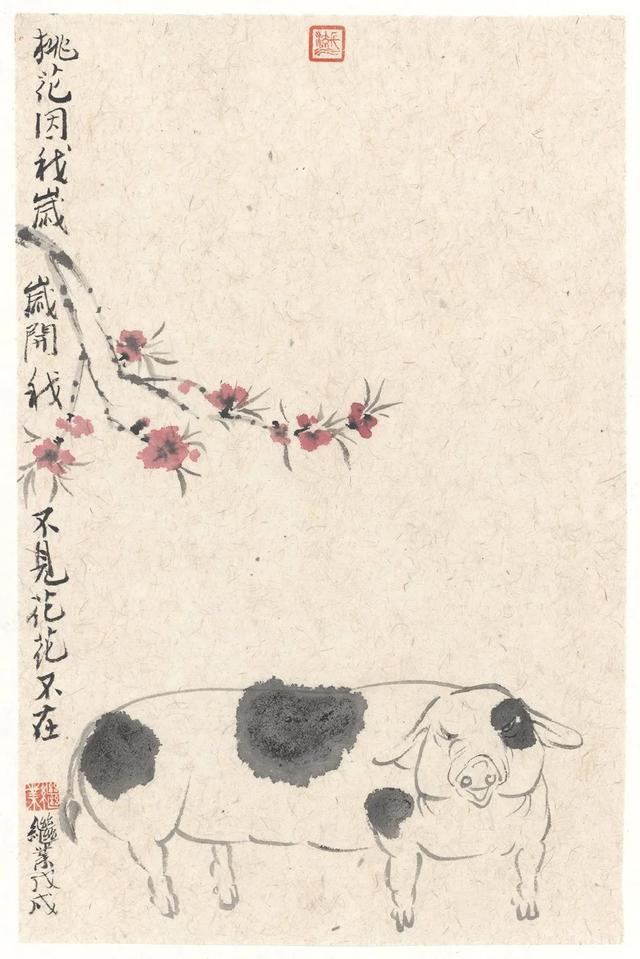 桃花因我歲
歲開我
不見花花不在
繼業戊戌